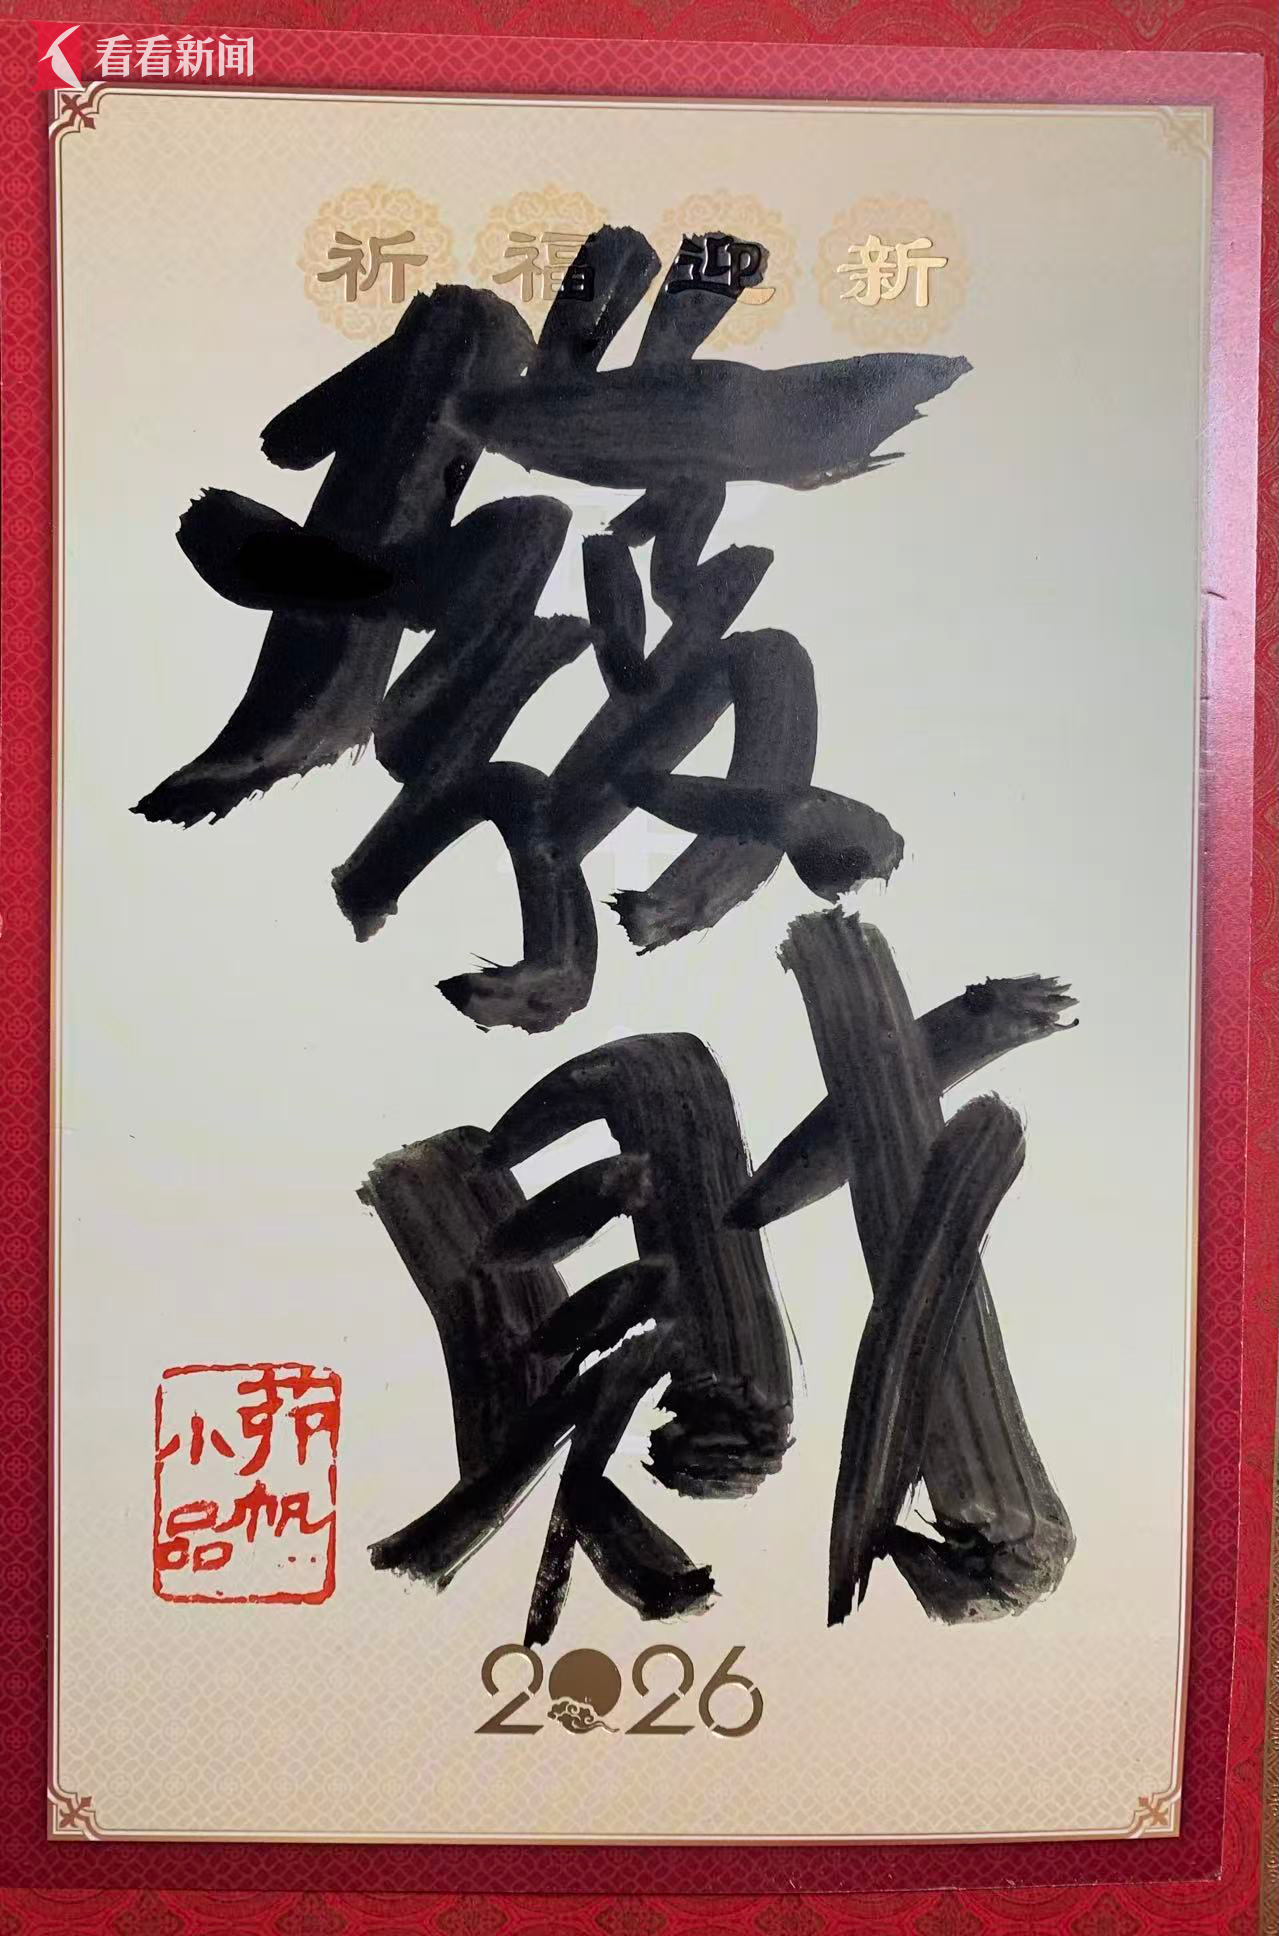 看看新闻
祈福迎新
發
財
茆帆
小品
2026